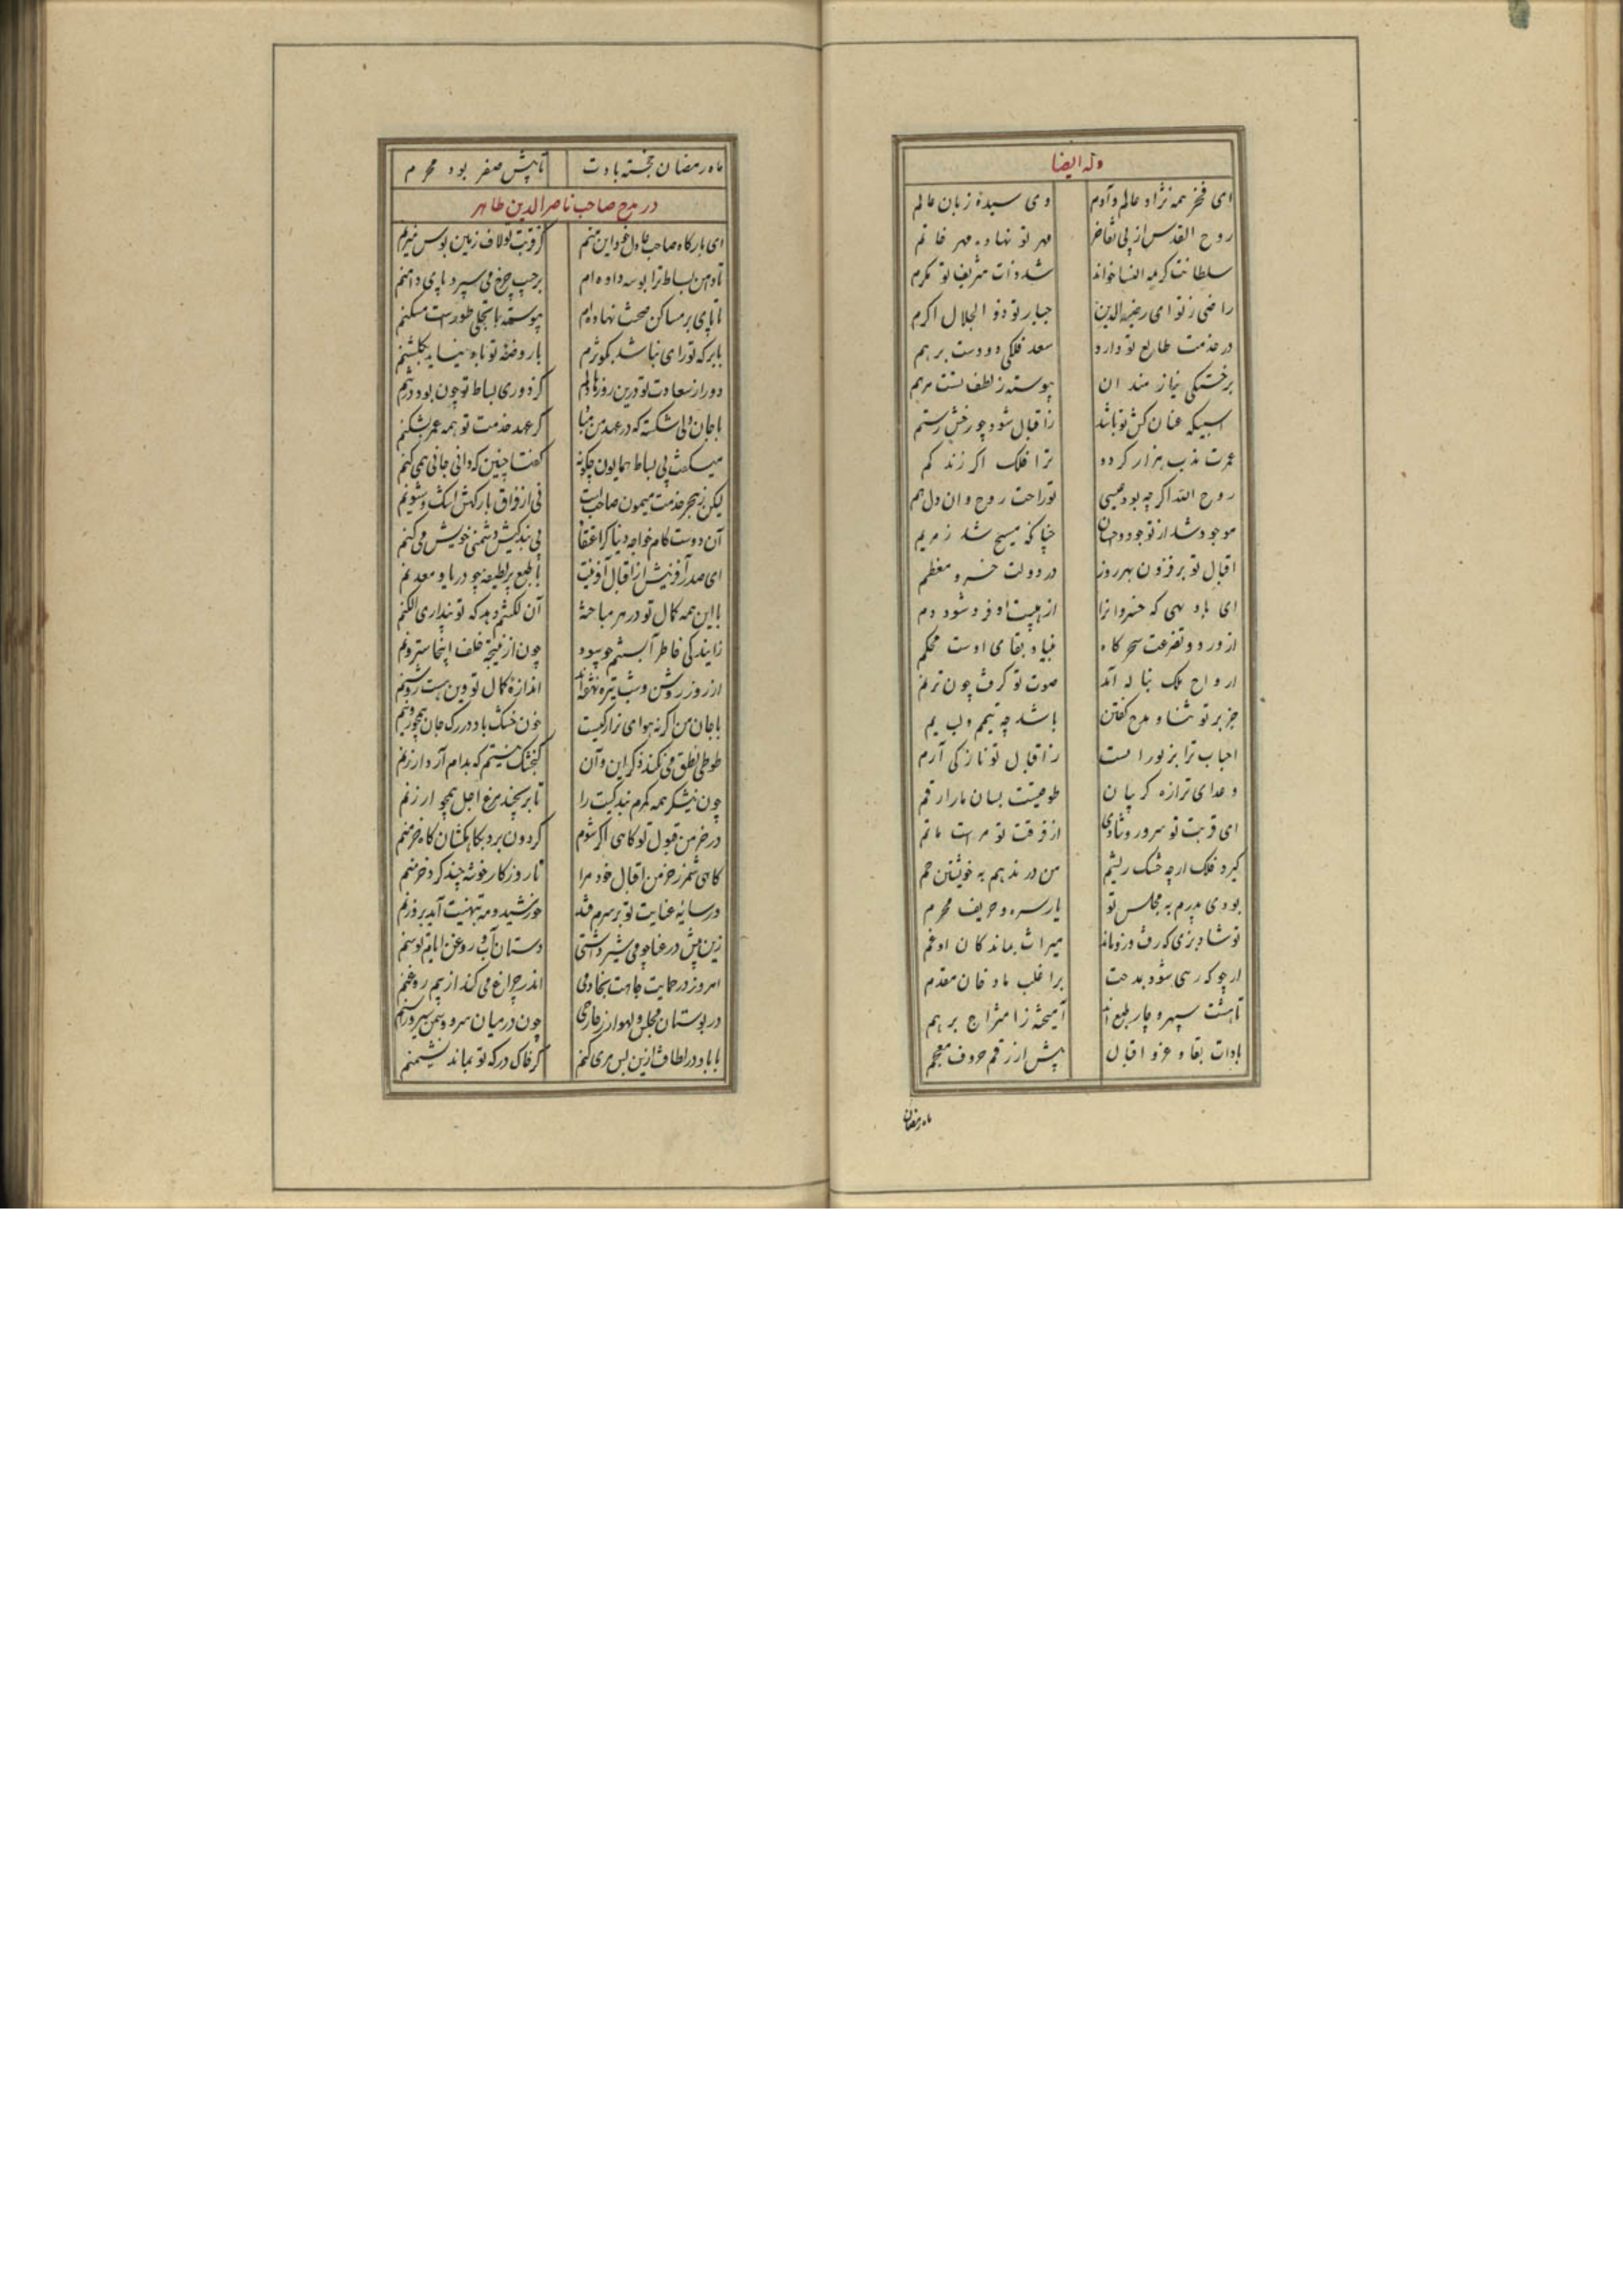 وله ایضا
ای فخر همه نژاد عالم و آدم وی سیدهٔ زنان عالم
روح القدس از پی تفاخر مهر تو نهاده مهر خاتم
سلطانت کریمة النسا خواند شد ذات شریف تو مکرم
راضی ز تو ای رضیة الدین جبار تو ذو الجلال اکرم
در خدمت طالع تو دارد سعد فلکی دو دست بر هم
بر خستگی نیازمندان پیوسته ز لطف تست مرهم
اسبیکه عنان کش تو باشد ز اقبال شود چو رخش رستم
عمرت مذب هزار گردد ترا فلک اگر زند کم
روح الله اگر چه بود عیسی تو راحت روح وان دل هم
موجود شد از تو جود و احسان چنانکه مسیح شد ز مریم
اقبال تو بر فزون بهر روز در دولت خسرو معظم
ای باد بهی که خسروانرا از هیبت او فرو شود دم
از ورد و تضرعت سحرگاه بنیاد بقای اوست محکم
ارواح ملک بناله آید صوت تو گرفت چون ترنم
جز بر تو ثنا و مدح گفتن باشد چه تیمم و لب یم
احباب ترا بزیور است ز اقبال تو ناز کی آرم
و عدای ترا زه گریبان طوقیست بسان مار ارقم
ای قربت تو سرور و شادی از فرقت تو مراست ماتم
گیرد فلک ار چه خشک ریشم من در ندهم به خویشتن خم
بودی پدرم به مجلس تو یار سره و حریف محرم
تو شاد بزی که رفت و زو ماند میراث بماندگان او غم
ار جو که رهی شود بمدحت بر اغلب مادحان مقدم
تا هشت سپهر و چار طبع اند آمیخته ز امتزاج بر هم
بادات بقا و عز و اقبال پیش از رقم حروف معجم
ماه رمضان
ماه رمضان خجسته بادت تا پیش صفر بود محرم
در مدح صاحب ناصرالدین طاهر
ای بارگاه صاحب عادل خود این منم کز قربت تو لاف زمین بوس میزنم
تا دامن بساط ترا بوسه داده ام بر جیب چرخ می سپرد پای دامنم
تا پای بر مساکن صحنت نهاده ام پیوسته با تجلی طورست مسکنم
با برکه تو رای نباشد بکوثرم با روضهٔ تو یاد نیاید ز گلشنم
دور از سعادت تو درین روزها دلم کز دوری بساط تو چون بود درهم
با جان ولی شکسته که در عهد من مباد گر عهد خدمت تو همه عمر بشکنم
میگفت بی بساط همایون چگونه گفتا چنین که دانی جانی همی کنم
لیکن ز هجر خدمت میمون صاحب است نی از فراق بارگهش اشک و شیونم
آن دوست کام خواجهٔ دنیا که اعتقاد بی بندگیش دشمنی خویش می کنم
ای صدر آفرینش از اقبال آفرینت با طبع پر لطیفه چو دریا و معدنم
با این همه کمال تو در هر مباحثه آن لکنتم دهد که تو پنداری الکنم
زایندگی خاطر آبستنم چو سود چون از نتیجهٔ خلف اینجا سترونم
از روز روشن و شب تیره نهفته اند اندازهٔ کمال تو وین هست روشنم
با جان من اگر نه هوای ترا رگیست خون خشک باد در رگ جان همچو روینم
طوطی نطق می نکند ذکر این و آن گنجشک نیستم که بدام آرد ارزنم
چون نیشکر همه کمرم بندگیت را تا بر نچند مرغ اجل همچو ارزنم
در خرمن قبول تو کاهی اگر شوم گردون برد بکاهکشان کاه خرمنم
کاهی شمر ز خرمن اقبال خود مرا تا روزگار خوشه چند گرد خرمنم
در سایهٔ عنایت تو بر سرم فتد خورشید و مه بتهنیت آید بروزنم
زین پیش در عنا چو می شیر داشتی دستان آب و روغن ایام توسنم
امروز در حمایت جاهت بخادمی اندر چراغ می کند از بیم روغنم
در بوستان مجلس لهو ار ز خارجی چون در میان سرو و سمن سیر و راسنم
با باد در لطافت ازین پس مری کنم گر خاک درگه تو بماند نشیمنم